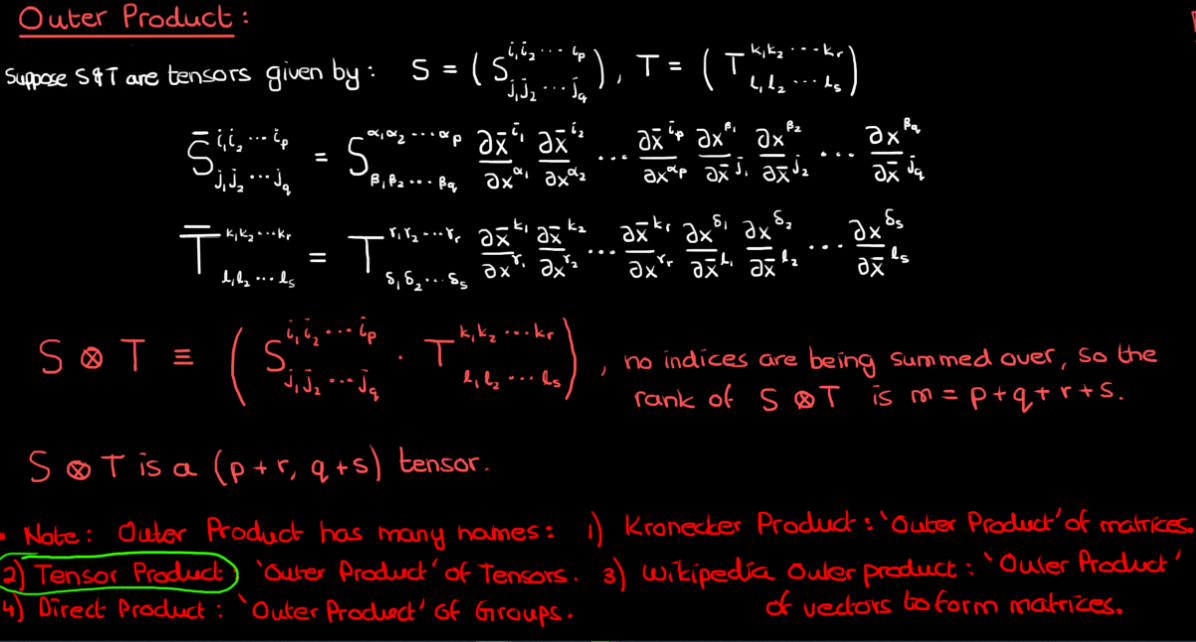 Outer Product:
Suppose S & T are tensors given by: S = (S^{i₁i₂...iₚ}_{j₁j₂...j_q}), T = (T^{k₁k₂...kᵣ}_{l₁l₂...lₛ})
S̄^{i₁i₂...iₚ}_{j₁j₂...j_q} = S^{α₁α₂...αₚ}_{β₁β₂...β_q} ∂x̄^{i₁}/∂x^{α₁} ∂x̄^{i₂}/∂x^{α₂} ... ∂x̄^{iₚ}/∂x^{αₚ} ∂x^{β₁}/∂x̄^{j₁} ∂x^{β₂}/∂x̄^{j₂} ... ∂x^{β_q}/∂x̄^{j_q}
T̄^{k₁k₂...kᵣ}_{l₁l₂...lₛ} = T^{r₁r₂...rᵣ}_{δ₁δ₂...δₛ} ∂x̄^{k₁}/∂x^{r₁} ∂x̄^{k₂}/∂x^{r₂} ... ∂x̄^{kᵣ}/∂x^{rᵣ} ∂x^{δ₁}/∂x̄^{l₁} ∂x^{δ₂}/∂x̄^{l₂} ... ∂x^{δₛ}/∂x̄^{lₛ}
S ⊗ T ≡ (S^{i₁i₂...iₚ}_{j₁j₂...j_q} · T^{k₁k₂...kᵣ}_{l₁l₂...lₛ}), no indices are being summed over, so the
rank of S ⊗ T is m = p+q+r+s.
S ⊗ T is a (p+r, q+s) tensor.
Note: Outer Product has many names: 1) Kronecker Product: 'Outer Product' of matrices.
2) Tensor Product: 'Outer Product' of Tensors. 3) Wikipedia Outer product: 'Outer Product'
of vectors to form matrices.
4) Direct Product: 'Outer Product' of Groups.